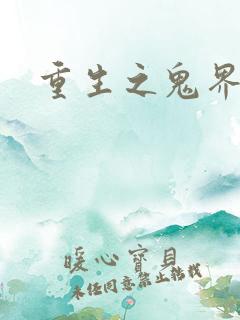 重生之鬼界
暖心寶貝
未经同意禁止转载